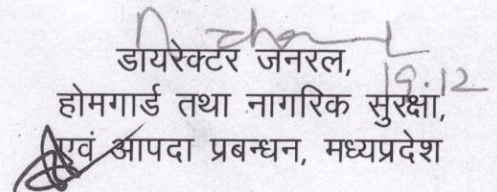 डायरेक्टर जनरल,
19.12
होमगार्ड तथा नागरिक सुरक्षा,
एवं आपदा प्रबन्धन, मध्यप्रदेश